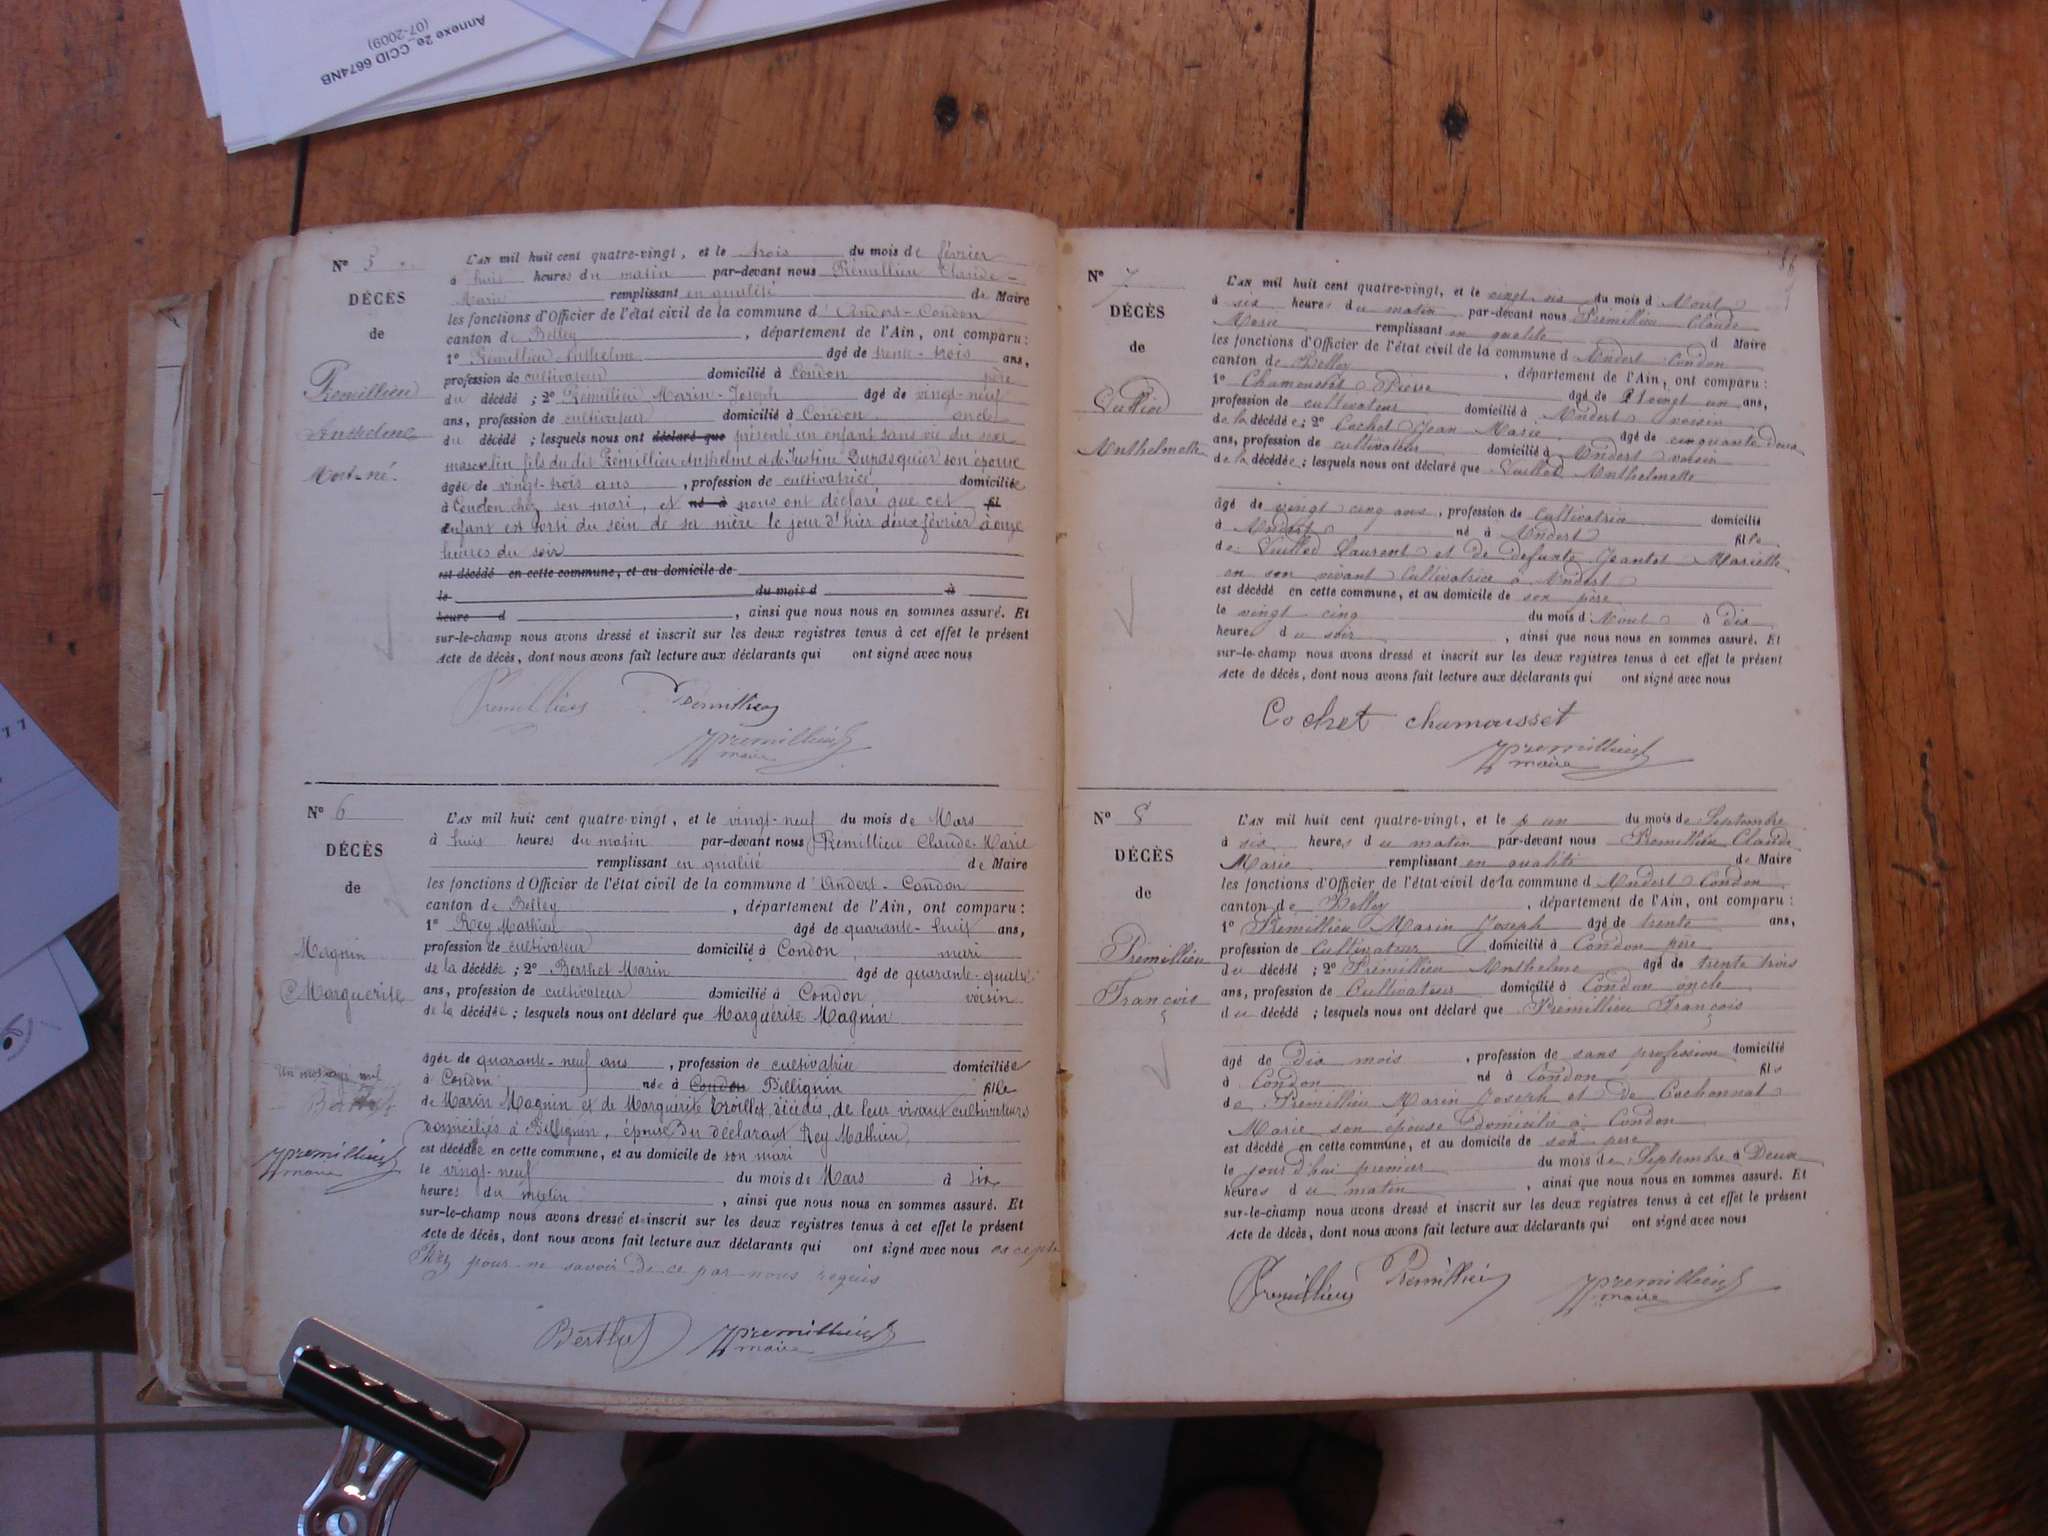 Annexe 2e_CCID 6674NB
(07-2009)
N° 5
DÉCÈS
de
Prémillieu
Anthelme
Mort-né.
L'AN mil huit cent quatre-vingt, et le trois du mois de février
à huit heures du matin par-devant nous Prémillieu Claude-
Marie remplissant en qualité de Maire
les fonctions d'Officier de l'état civil de la commune d'Andert-Condon
canton de Belley, département de l'Ain, ont comparu:
1° Prémillieu Anthelme âgé de trente-trois ans,
profession de cultivateur domicilié à Condon père
du décédé; 2° Prémilieu Marin-Joseph âgé de vingt-neuf
ans, profession de cultivateur domicilié à Condon oncle
du décédé; lesquels nous ont déclaré que présenté un enfant sans vie du sexe
masculin fils du dit Prémillieu Anthelme et de Justine Dupasquier son épouse
âgée de vingt-trois ans, profession de cultivatrice domiciliée
à Condon chez son mari, et né à nous ont déclaré que cet fil
enfant est sorti du sein de sa mère le jour d'hier deux février à onze
heures du soir
est décédé en cette commune, et au domicile de
le du mois d à
heure d , ainsi que nous nous en sommes assuré. Et
sur-le-champ nous avons dressé et inscrit sur les deux registres tenus à cet effet le présent
Acte de décès, dont nous avons fait lecture aux déclarants qui ont signé avec nous
Premillieu Premillieu
premillieu
maire
N° 6
DÉCÈS
de
Magnin
Marguerite
Un mot rayé nul
Berthet
premillieu
maire
L'AN mil huit cent quatre-vingt, et le vingt-neuf du mois de Mars
à huit heures du matin par-devant nous Prémillieu Claude-Marie
remplissant en qualité de Maire
les fonctions d'Officier de l'état civil de la commune d'Andert-Condon
canton de Belley, département de l'Ain, ont comparu:
1° Rey Mathieu âgé de quarante-huit ans,
profession de cultivateur domicilié à Condon, mari
de la décédée; 2° Berthet Marin âgé de quarante-quatre
ans, profession de cultivateur domicilié à Condon, voisin
de la décédée; lesquels nous ont déclaré que Marguerite Magnin
âgée de quarante-neuf ans, profession de cultivatrice domiciliée
à Condon née à Condon Billignin fille
de Marin Magnin et de Marguérite décédés, de leur vivant cultivateurs
domiciliés à Billignin, épouse du déclarant Rey Mathieu,
est décédée en cette commune, et au domicile de son mari
le vingt-neuf du mois de Mars à six
heures du matin, ainsi que nous nous en sommes assuré. Et
sur-le-champ nous avons dressé et inscrit sur les deux registres tenus à cet effet le présent
Acte de décès, dont nous avons fait lecture aux déclarants qui ont signé avec nous excepté
Rey pour ne savoir de ce par nous requis
Berthet premillieu
maire
N° 7
DÉCÈS
de
Anthelmette
L'AN mil huit cent quatre-vingt, et le vingt six du mois d'Aout
à six heures du matin par-devant nous Prémillieu Claude
Marie remplissant en qualité d Maire
les fonctions d'Officier de l'état civil de la commune d Andert Condon
canton de Belley, département de l'Ain, ont comparu:
1° Chamousset Pierre âgé de vingt un ans,
profession de cultivateur domicilié à Andert voisin
de la décédée; 2° Cochet Jean Marie âgé de cinquante deux
ans, profession de cultivateur domicilié à Andert voisin
de la décédée; lesquels nous ont déclaré que Anthelmette
âgé de vingt cinq ans, profession de Cultivatrice domicilié
à Andert né à Andert fille
de Laurent et de defunte Jeantet Mariette
en son vivant Cultivatrice à Andert
est décédé en cette commune, et au domicile de son père
le vingt cinq du mois d'Aout à dix
heures du soir, ainsi que nous nous en sommes assuré. Et
sur-le-champ nous avons dressé et inscrit sur les deux registres tenus à cet effet le présent
Acte de décès, dont nous avons fait lecture aux déclarants qui ont signé avec nous
Cochet chamousset
premillieu
maire
N° 8
DÉCÈS
de
Prémillieu
François
L'AN mil huit cent quatre-vingt, et le un du mois de Septembre
à six heures du matin par-devant nous Prémillieu Claude
Marie remplissant en qualité de Maire
les fonctions d'Officier de l'état civil de la commune d Andert Condon
canton de Belley, département de l'Ain, ont comparu:
1° Prémillieu Marin Joseph âgé de trente ans,
profession de Cultivateur domicilié à Condon père
du décédé; 2° Prémillieu Anthelme âgé de trente trois
ans, profession de Cultivateur domicilié à Condon oncle
du décédé; lesquels nous ont déclaré que Prémillieu François
âgé de Dix mois, profession de sans profession domicilié
à Condon né à Condon fils
de Prémillieu Marin Joseph et de Cochonnat
Marie son épouse Domicilié à Condon
est décédé en cette commune, et au domicile de son père
le jour d'hui premier du mois de Septembre à Deux
heures du matin, ainsi que nous nous en sommes assuré. Et
sur-le-champ nous avons dressé et inscrit sur les deux registres tenus à cet effet le présent
Acte de décès, dont nous avons fait lecture aux déclarants qui ont signé avec nous
Premillieu Premillieu premillieu
maire